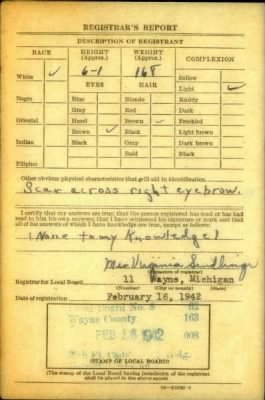 REGISTRAR'S REPORT
DESCRIPTION OF REGISTRANT
RACE HEIGHT (Approx.) WEIGHT (Approx.) COMPLEXION
White ✓ 6-1 168 Sallow
EYES HAIR Light ✓
Negro Blue Blonde Ruddy
Gray Red Dark
Oriental Hazel Brown ✓ Freckled
Brown ✓ Black Light brown
Indian Black Gray Dark brown
Bald Black
Filipino
Other obvious physical characteristics that will aid in identification
Scar across right eyebrow.
I certify that my answers are true; that the person registered has read or has had
read to him his own answers; that I have witnessed his signature or mark and that
all of his answers of which I have knowledge are true, except as follows:
(None to my Knowledge)
Mrs Virginia
(Signature of registrar)
Registrar for Local Board 11 Wayne, Michigan
(Number) (City or county) (State)
Date of registration February 16, 1942
Local Board No. 8 82
Wayne County 163
FEB 26 1942 008
(STAMP OF LOCAL BOARD)
(The stamp of the Local Board having jurisdiction of the registrant
shall be placed in the above space)